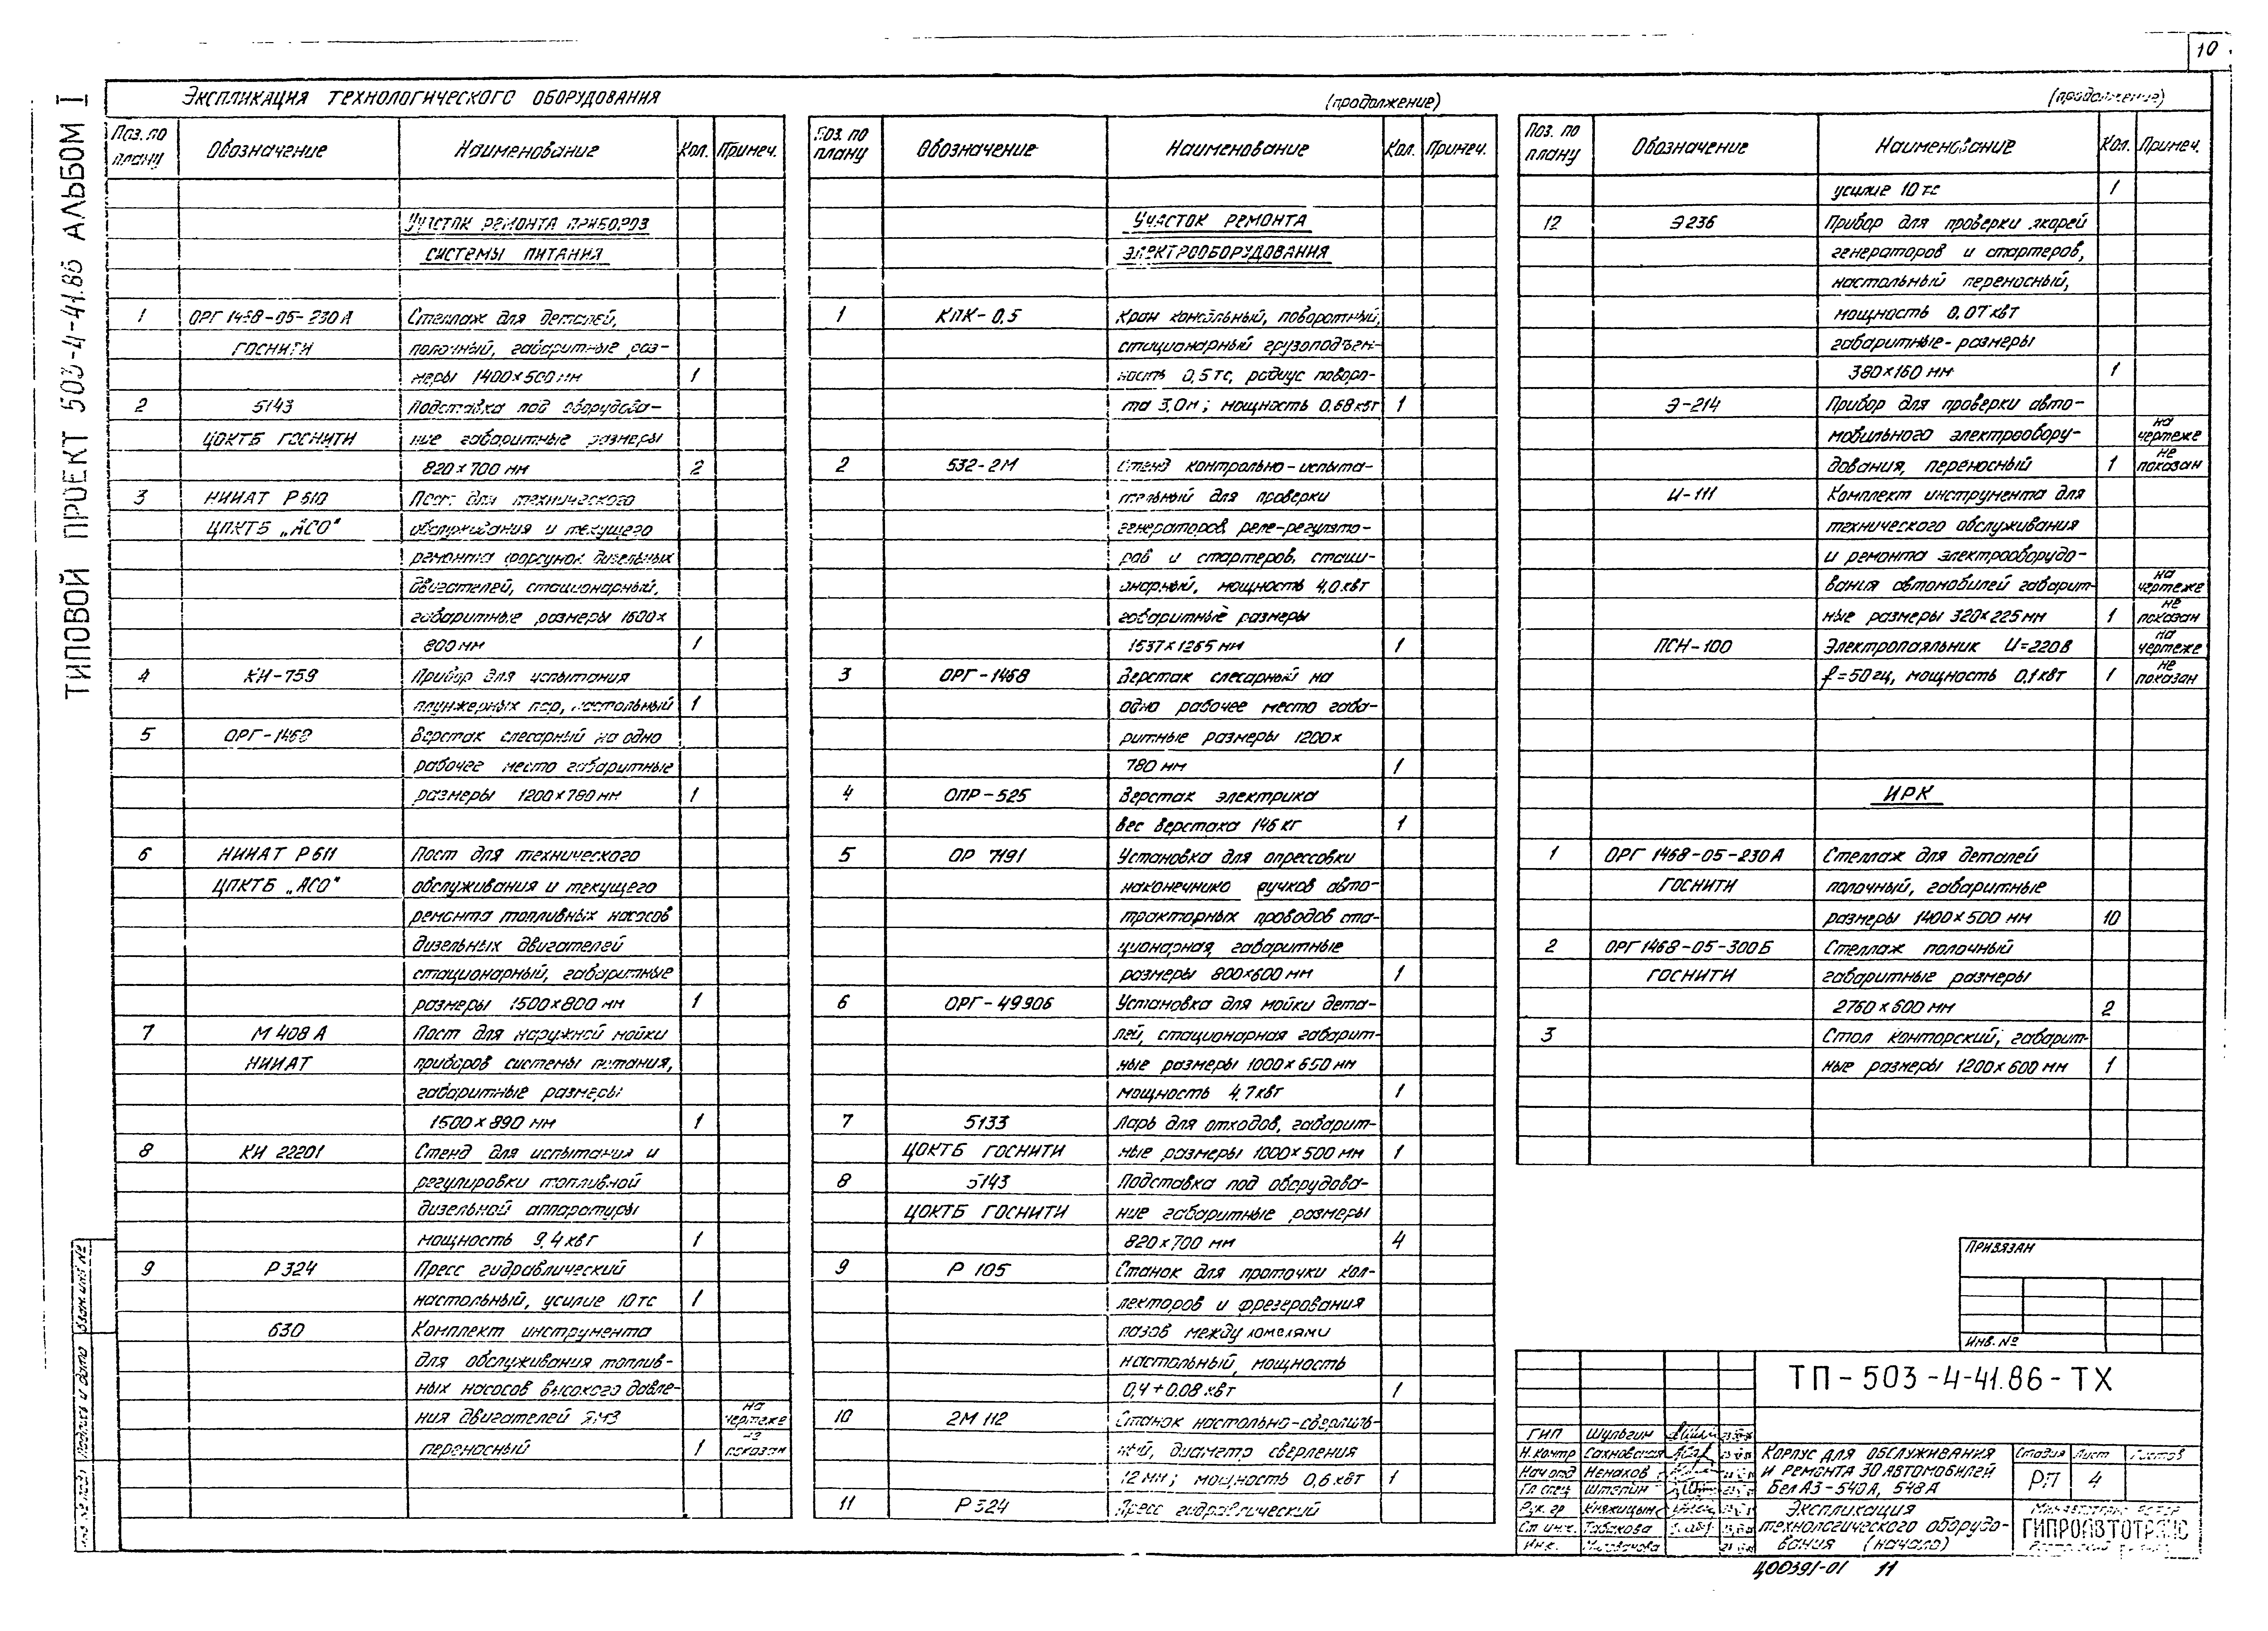 10
ТИПОВОЙ ПРОЕКТ 503-4-41.86 АЛЬБОМ I
Экспликация технологического оборудования
Поз. по плану Обозначение Наименование Кол. Примеч.
Участок ремонта приборов
системы питания
1 ОРГ 1468-05-230А Стеллаж для деталей,
ГОСНИТИ полочный, габаритные раз-
меры 1400×500 мм 1
2 5143 Подставка под оборудова-
ЦОКТБ ГОСНИТИ ние габаритные размеры
820×700 мм 2
3 НИИАТ Р610 Пост для технического
ЦПКТБ „АСО" обслуживания и текущего
ремонта форсунок дизельных
двигателей, стационарный,
габаритные размеры 1600×
800 мм 1
4 КИ-759 Прибор для испытания
плунжерных пар, настольный 1
5 ОРГ-1468 Верстак слесарный на одно
рабочее место габаритные
размеры 1200×780 мм 1
6 НИИАТ Р611 Пост для технического
ЦПКТБ „АСО" обслуживания и текущего
ремонта топливных насосов
дизельных двигателей
стационарный, габаритные
размеры 1500×800 мм 1
7 М 408 А Пост для наружной мойки
НИИАТ приборов системы питания,
габаритные размеры
1500×890 мм 1
8 КИ 22201 Стенд для испытания и
регулировки топливной
дизельной аппаратуры
мощность 9,4 квт 1
9 Р 324 Пресс гидравлический
настольный, усилие 10 тс 1
630 Комплект инструмента
для обслуживания топлив-
ных насосов высокого давле-
ния двигателей ЯМЗ на чертеже
переносный 1 не показан
(продолжение)
Поз. по плану Обозначение Наименование Кол. Примеч.
Участок ремонта
электрооборудования
1 КПК-0,5 Кран консольный, поворотный,
стационарный грузоподъем-
ность 0,5 тс, радиус поворо-
та 3,0м; мощность 0,68 квт 1
2 532-2М Стенд контрольно-испыта-
тельный для проверки
генераторов, реле-регулято-
ров и стартеров, стаци-
онарный, мощность 4,0 квт
габаритные размеры
1537×1265 мм 1
3 ОРГ-1468 Верстак слесарный на
одно рабочее место габа-
ритные размеры 1200×
780 мм 1
4 ОПР-525 Верстак электрика
вес верстака 146 кг 1
5 ОР 7191 Установка для опрессовки
наконечнико ручков авто-
тракторных проводов ста-
ционарная, габаритные
размеры 800×600 мм 1
6 ОРГ-49906 Установка для мойки дета-
лей, стационарная габарит-
ные размеры 1000×650 мм
мощность 4,7 квт 1
7 5133 Ларь для отходов, габарит-
ЦОКТБ ГОСНИТИ ные размеры 1000×500 мм 1
8 5143 Подставка под оборудова-
ЦОКТБ ГОСНИТИ ние габаритные размеры
820×700 мм 4
9 Р 105 Станок для проточки кол-
лекторов и фрезерования
пазов между ламелями
настольный, мощность
0,4+0,08 квт 1
10 2М 112 Станок настольно-сверлиль-
ный, диаметр сверления
12 мм; мощность 0,6 квт 1
11 Р 324 Пресс гидравлический
(продолжение)
Поз. по плану Обозначение Наименование Кол. Примеч.
усилие 10 тс 1
12 Э 236 Прибор для проверки якорей
генераторов и стартеров,
настольный переносный,
мощность 0,07 квт
габаритные-размеры
380×160 мм 1
Э-214 Прибор для проверки авто-
мобильного электрообору- на чертеже
дования, переносный 1 не показан
И-111 Комплект инструмента для
технического обслуживания
и ремонта электрооборудо-
вания автомобилей габарит- на чертеже
ные размеры 320×225 мм 1 не показан
ПСН-100 Электропаяльник U=220в на чертеже
f=50гц, мощность 0,1 квт 1 не показан
ИРК
1 ОРГ 1468-05-230А Стеллаж для деталей
ГОСНИТИ полочный, габаритные
размеры 1400×500 мм 10
2 ОРГ 1468-05-300Б Стеллаж полочный
ГОСНИТИ габаритные размеры
2760×600 мм 2
3 Стол конторский, габарит-
ные размеры 1200×600 мм 1
Привязан
Инв. №
ТП-503-4-41.86-ТХ
ГИП Шульгин
Н.контр Сахновская
Нач отд Ненахов
Гл спец Штепин
Рук. гр Княжицын
Ст инж. Табакова
Инж.
Корпус для обслуживания
и ремонта 30 автомобилей
БелАЗ-540А, 548А
Стадия Лист Листов
РП 4
Экспликация
технологического оборудо-
вания (начало)
ГИПРОАВТОТРАНС
Взам инв №
Подпись и дата
Инв № подл
Ц00391-01 11